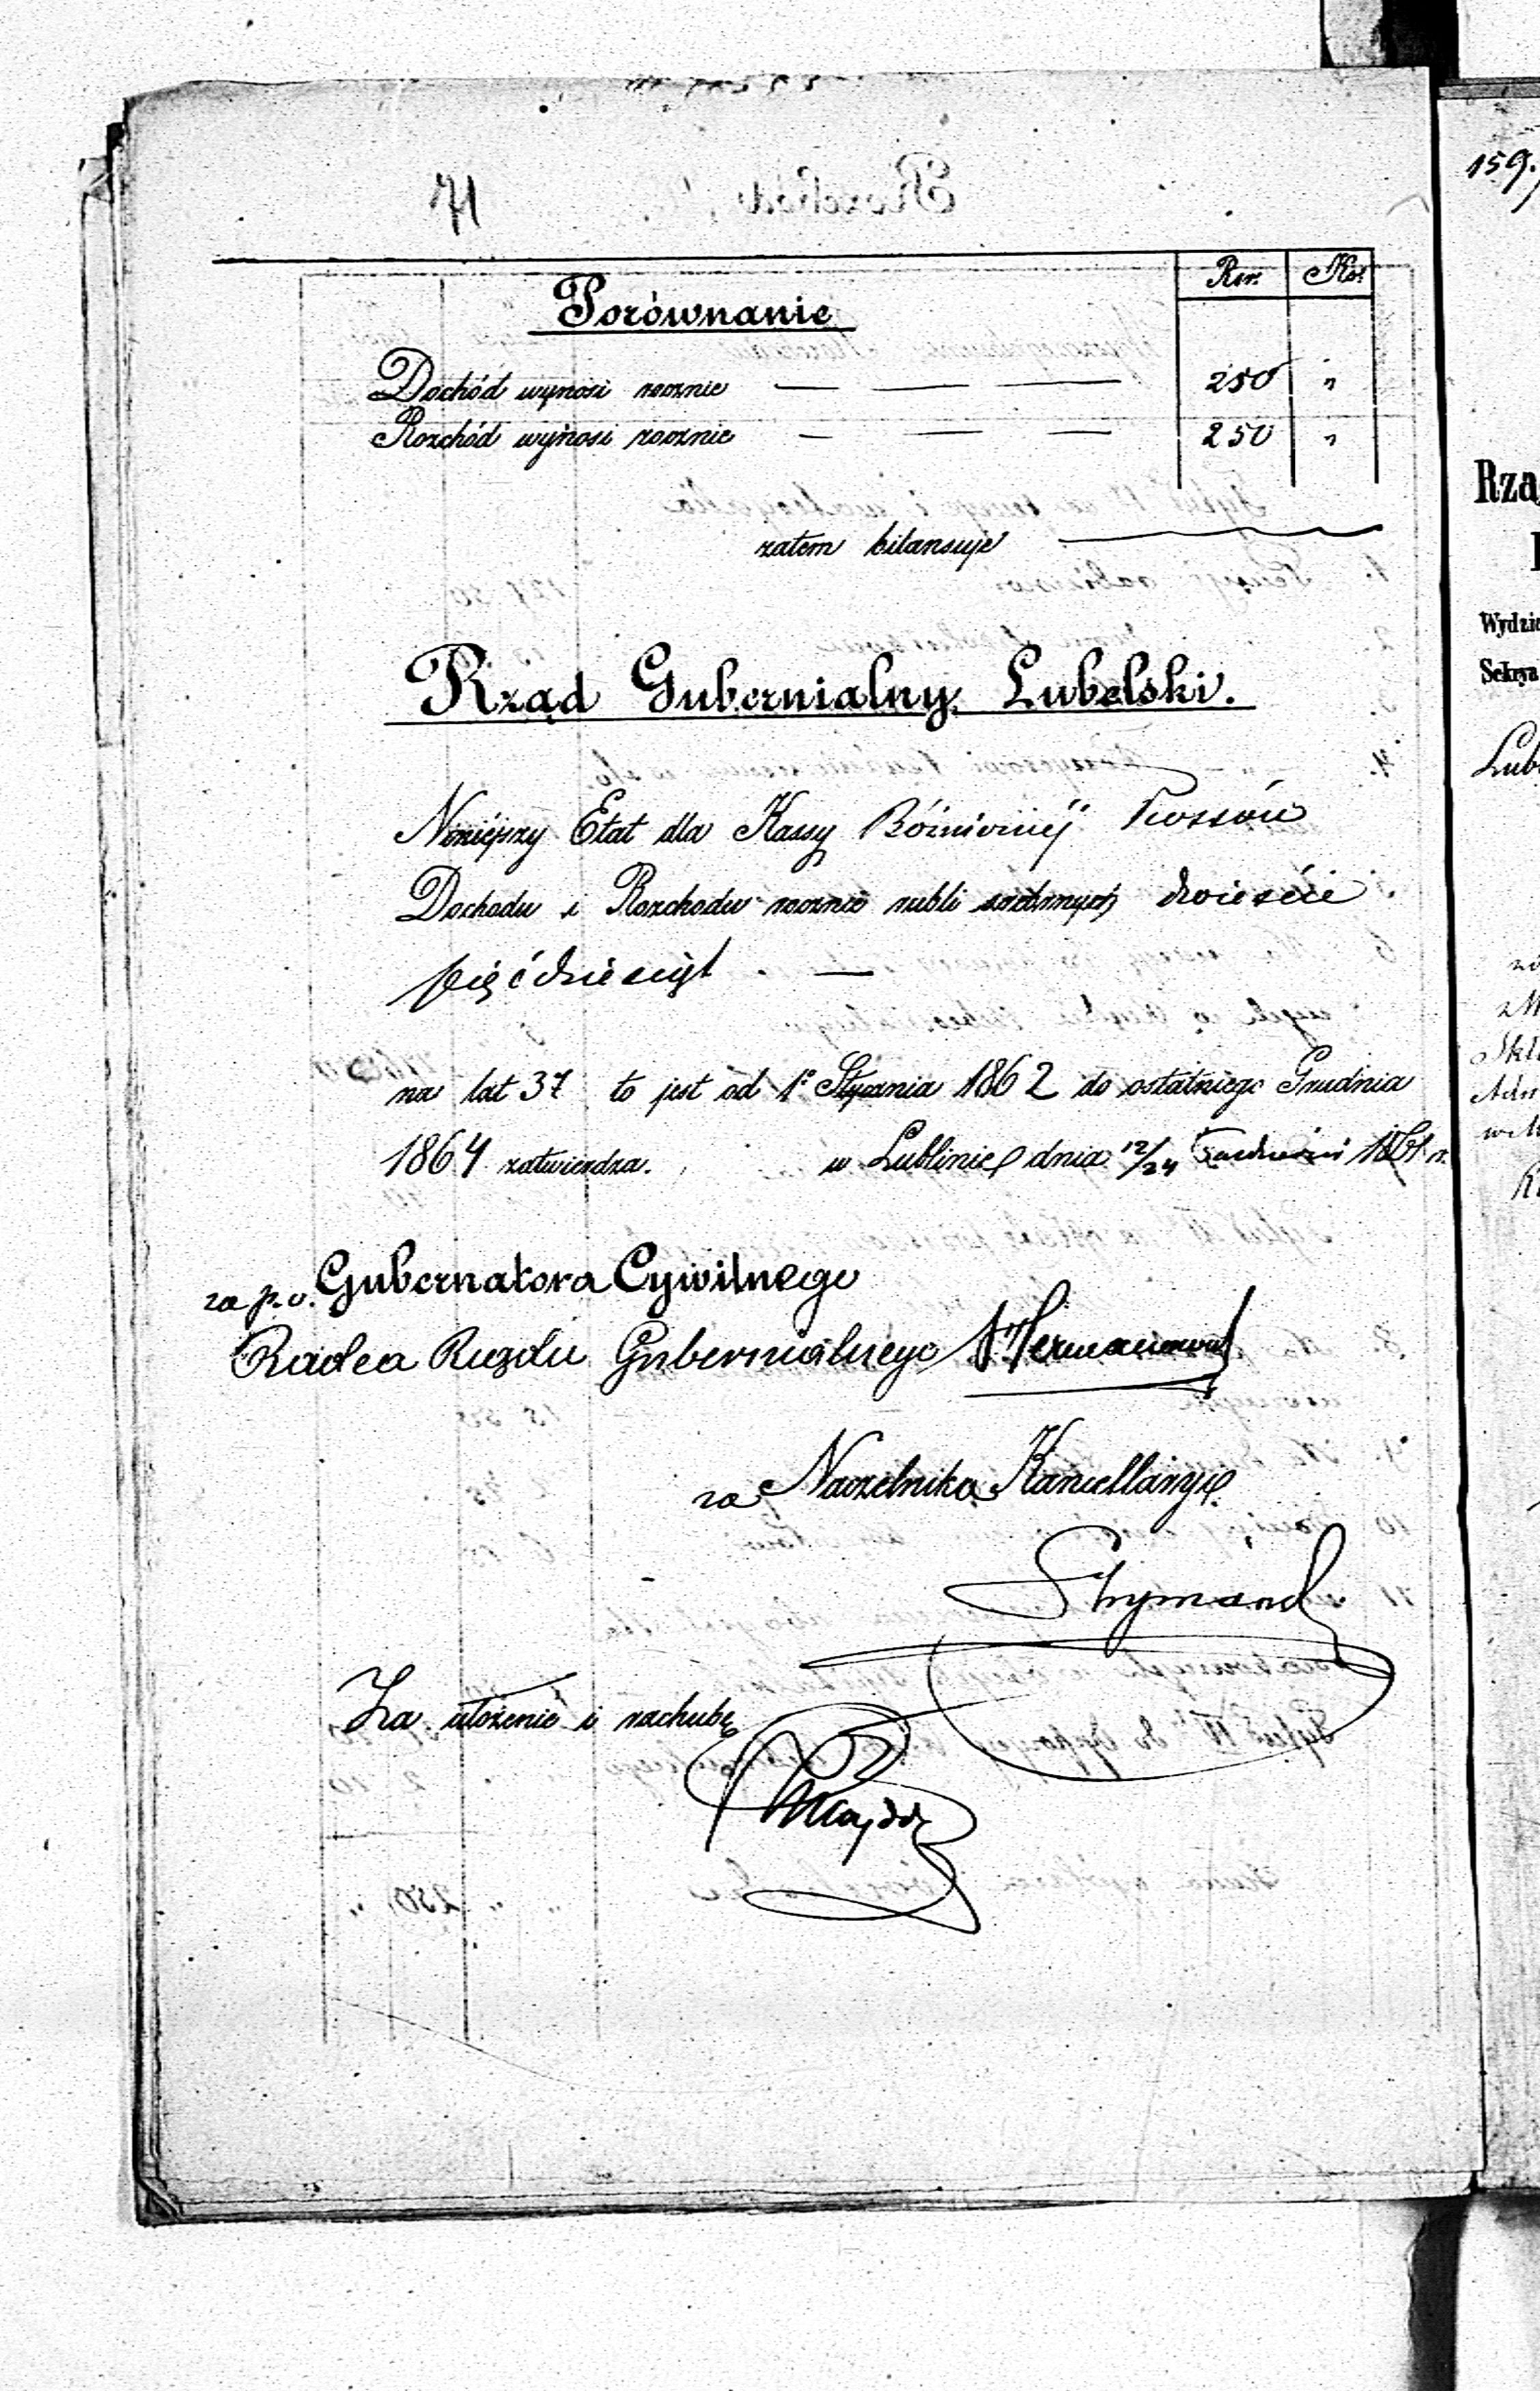 71
Rsr. Kop.
Porównanie
Dochód wynosi rocznie — — — 250 "
Rozchód wynosi rocznie — — — 250 "
zatem bilansuje
Rząd Gubernialny Lubelski.
Niniéjszy Etat dla Kassy Bóżnicznéj Kossów
Dochodu i Rozchodu rocznie rubli srebrnych dwieście
pięćdziesiąt . —
na lat 3 to jest od 1º Stycznia 1862 do ostatniego Grudnia
1864 zatwierdza. w Lublinie dnia 12/24 1861 r.
za p. o. Gubernatora Cywilnego
Radca Rządu Gubernialnego
za Naczelnika Kancellaryi
Za ułożenie i rachubę
159.
Rzą
Wydzia
Sekcya
Lub